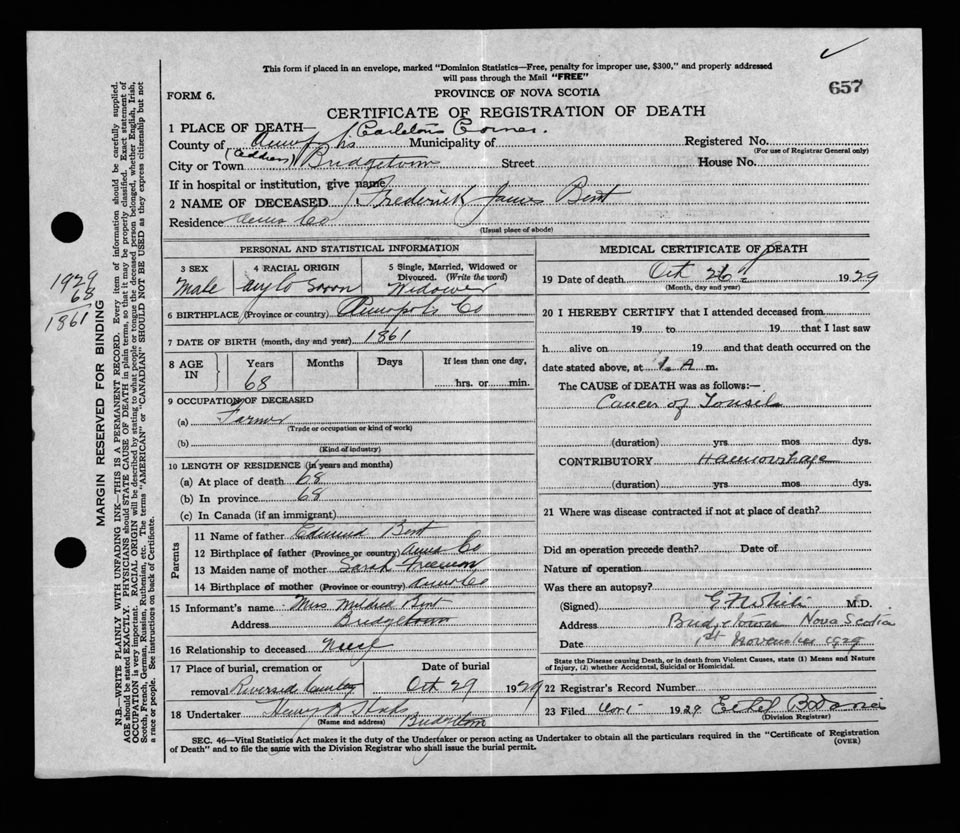 This form if placed in an envelope, marked "Dominion Statistics—Free, penalty for improper use, $300," and properly addressed
will pass through the Mail "FREE"
657
FORM 6.
PROVINCE OF NOVA SCOTIA
CERTIFICATE OF REGISTRATION OF DEATH
1 PLACE OF DEATH— Carletons Corner.
County of Annapolis Municipality of Registered No.
(For use of Registrar General only)
(Address)
City or Town Bridgetown Street House No.
If in hospital or institution, give name
2 NAME OF DECEASED Frederick James Bent
Residence Anna Co
(Usual place of abode)
PERSONAL AND STATISTICAL INFORMATION
3 SEX 4 RACIAL ORIGIN 5 Single, Married, Widowed or Divorced. (Write the word)
Male Anglo Saxon Widower
6 BIRTHPLACE (Province or country) Annapolis Co
7 DATE OF BIRTH (month, day and year) 1861
8 AGE IN Years Months Days If less than one day,
68 hrs. or min.
9 OCCUPATION OF DECEASED
(a) Farmer
(Trade or occupation or kind of work)
(b)
(Kind of industry)
10 LENGTH OF RESIDENCE (in years and months)
(a) At place of death 68
(b) In province 68
(c) In Canada (if an immigrant)
Parents
11 Name of father Edmund Bent
12 Birthplace of father (Province or country) Anna Co
13 Maiden name of mother Sarah Freeman
14 Birthplace of mother (Province or country) Anna Co
15 Informant's name Miss Mildred Bent
Address Bridgetown
16 Relationship to deceased
17 Place of burial, cremation or Date of burial
removal Riverside Oct 29 1929
18 Undertaker Bridgetown
(Name and address)
MEDICAL CERTIFICATE OF DEATH
19 Date of death Oct 26 1929
(Month, day and year)
20 I HEREBY CERTIFY that I attended deceased from
19 to 19 that I last saw
h alive on 19 and that death occurred on the
date stated above, at 1. A m.
The CAUSE of DEATH was as follows:—
Cancer of Tonsil
(duration) yrs. mos. dys.
CONTRIBUTORY Haemorrhage
(duration) yrs. mos. dys.
21 Where was disease contracted if not at place of death?
Did an operation precede death? Date of
Nature of operation
Was there an autopsy?
(Signed) M.D.
Address Bridgetown Nova Scotia
Date 1st November 1929
State the Disease causing Death, or in death from Violent Causes, state (1) Means and Nature
of Injury, (2) whether Accidental, Suicidal or Homicidal.
22 Registrar's Record Number
23 Filed Nov 1 1929. Ethel
(Division Registrar)
SEC. 46—Vital Statistics Act makes it the duty of the Undertaker or person acting as Undertaker to obtain all the particulars required in the "Certificate of Registration
of Death" and to file the same with the Division Registrar who shall issue the burial permit.
(OVER)
1929
68
1861
MARGIN RESERVED FOR BINDING
N.B.—WRITE PLAINLY WITH UNFADING INK—THIS IS A PERMANENT RECORD. Every item of information should be carefully supplied.
AGE should be stated EXACTLY. PHYSICIANS should STATE CAUSE OF DEATH in plain terms, so that it may be properly classified. Exact statement of
OCCUPATION is very important. RACIAL ORIGIN will be described by stating to what people or tongue the deceased person belonged, whether English, Irish,
Scotch, French, German, Russian, Ruthenian, etc. The terms "AMERICAN" or "CANADIAN" SHOULD NOT BE USED as they express citizenship but not
a race or people. See instructions on back of Certificate.